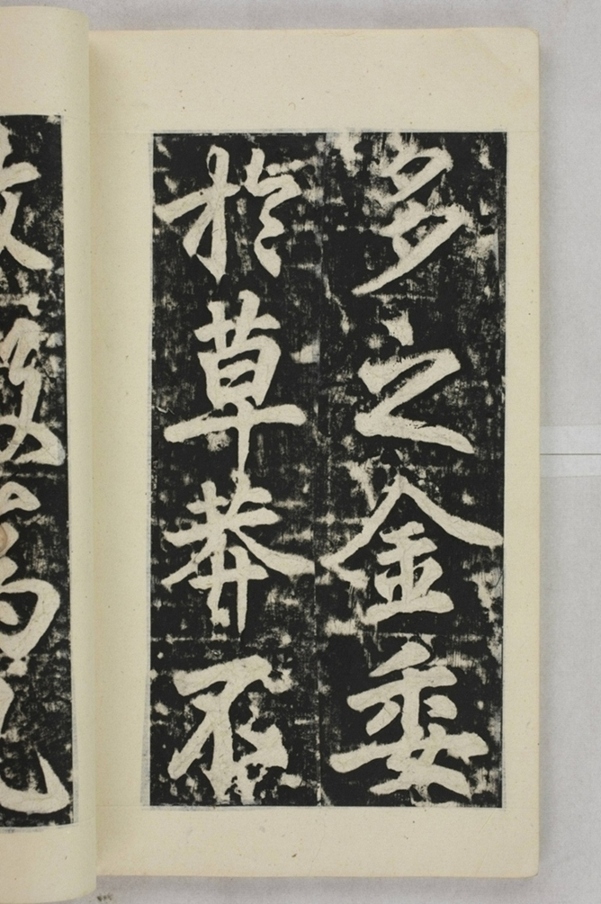 多之金委
於草莽不